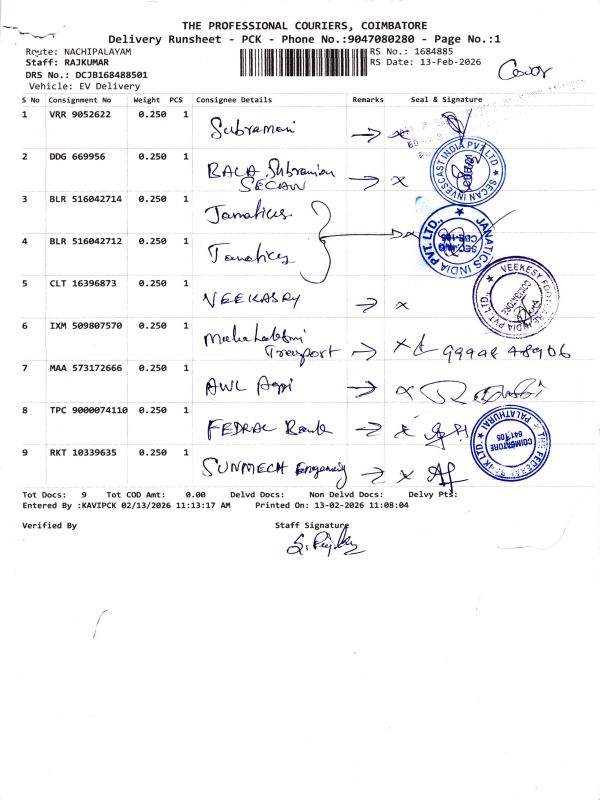 THE PROFESSIONAL COURIERS, COIMBATORE
Delivery Runsheet - PCK - Phone No.:9047080280 - Page No.:1
Route: NACHIPALAYAM
RS No.: 1684885
Staff: RAJKUMAR
RS Date: 13-Feb-2026
DRS No.: DCJB168488501
Cover
Vehicle: EV Delivery
S No Consignment No Weight PCS Consignee Details Remarks Seal & Signature
1 VRR 9052622 0.250 1 Subramani
2 DDG 669956 0.250 1 BALA Subramian
SECAN
SECAN INVESCAST INDIA PVT LTD
3 BLR 516042714 0.250 1 Janatics
JANATICS INDIA PVT. LTD.,
4 BLR 516042712 0.250 1 Janatics
5 CLT 16396873 0.250 1 VEEKASRY
VEEKESY FOOTCARE INDIA PVT LTD.,
COIMBATORE
6 IXM 509807570 0.250 1 Mahalakshmi
Transport
7 MAA 573172666 0.250 1 AWL Agri
8 TPC 9000074110 0.250 1 FEDRAL Bank
THE FEDERAL BANK LTD.
PALATHURAI
COIMBATORE
641 105
9 RKT 10339635 0.250 1 SUNMECH Engineering
Tot Docs: 9 Tot COD Amt: 0.00 Delvd Docs: Non Delvd Docs: Delvy Pts:
Entered By :KAVIPCK 02/13/2026 11:13:17 AM Printed On: 13-02-2026 11:08:04
Verified By Staff Signature